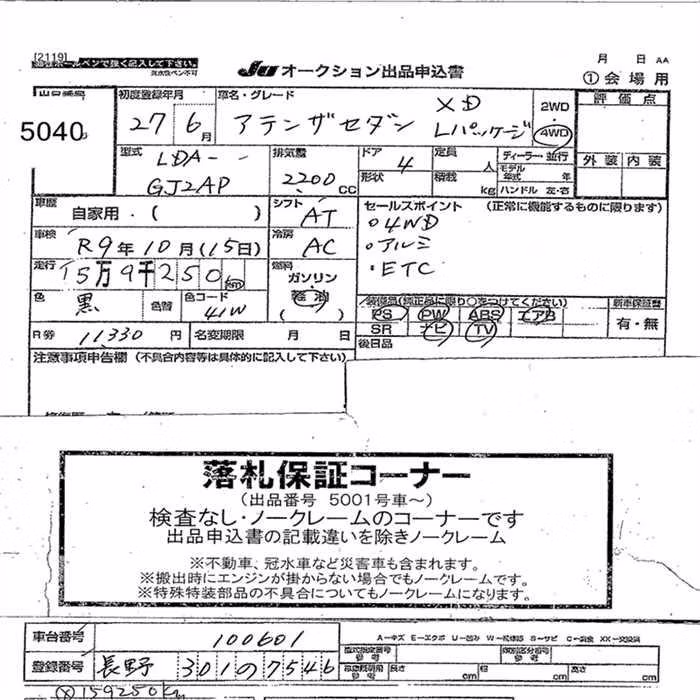 [2119]
月 日 AA
JU オークション出品申込書
①会場用
出品番号
5040
初度登録年月
27 6月
車名・グレード
アテンザセダン XD Lパッケージ
2WD
4WD
評価点
型式
LDA-
GJ2AP
排気量
2200 CC
ドア 4
形状
定員 人
積載 kg
ディーラー・並行
モデル年式 年
ハンドル 左・右
外装 内装
車歴
自家用・( )
シフト
AT
セールスポイント (正常に機能するものに限ります)
○4WD
・アルミ
・ETC
車検
R9年10月(15日)
冷房
AC
走行
15万9千250 km
燃料
ガソリン
軽油
( )
色
黒
色替
色コード
41W
装備品(純正品に限り○をつけてください)
PS PW ABS エアB
SR ナビ TV
新車保証書
有・無
R券 11330円
名変期限 月 日
後日品
注意事項申告欄 (不具合内容等は具体的に記入して下さい)
落札保証コーナー
(出品番号 5001号車〜)
検査なし・ノークレームのコーナーです
出品申込書の記載違いを除きノークレーム
※不動車、冠水車など災害車も含まれます。
※搬出時にエンジンが掛からない場合でもノークレームです。
※特殊特装部品の不具合についてもノークレームになります。
車台番号
100601
A−キズ E−エクボ U−凹み W−板補跡 S−サビ C−腐食 XX−交換済
型式指定番号 参考
類別区分番号 参考
登録番号
長野 301 の 7546
長さ cm
幅 cm
高さ cm
159250km